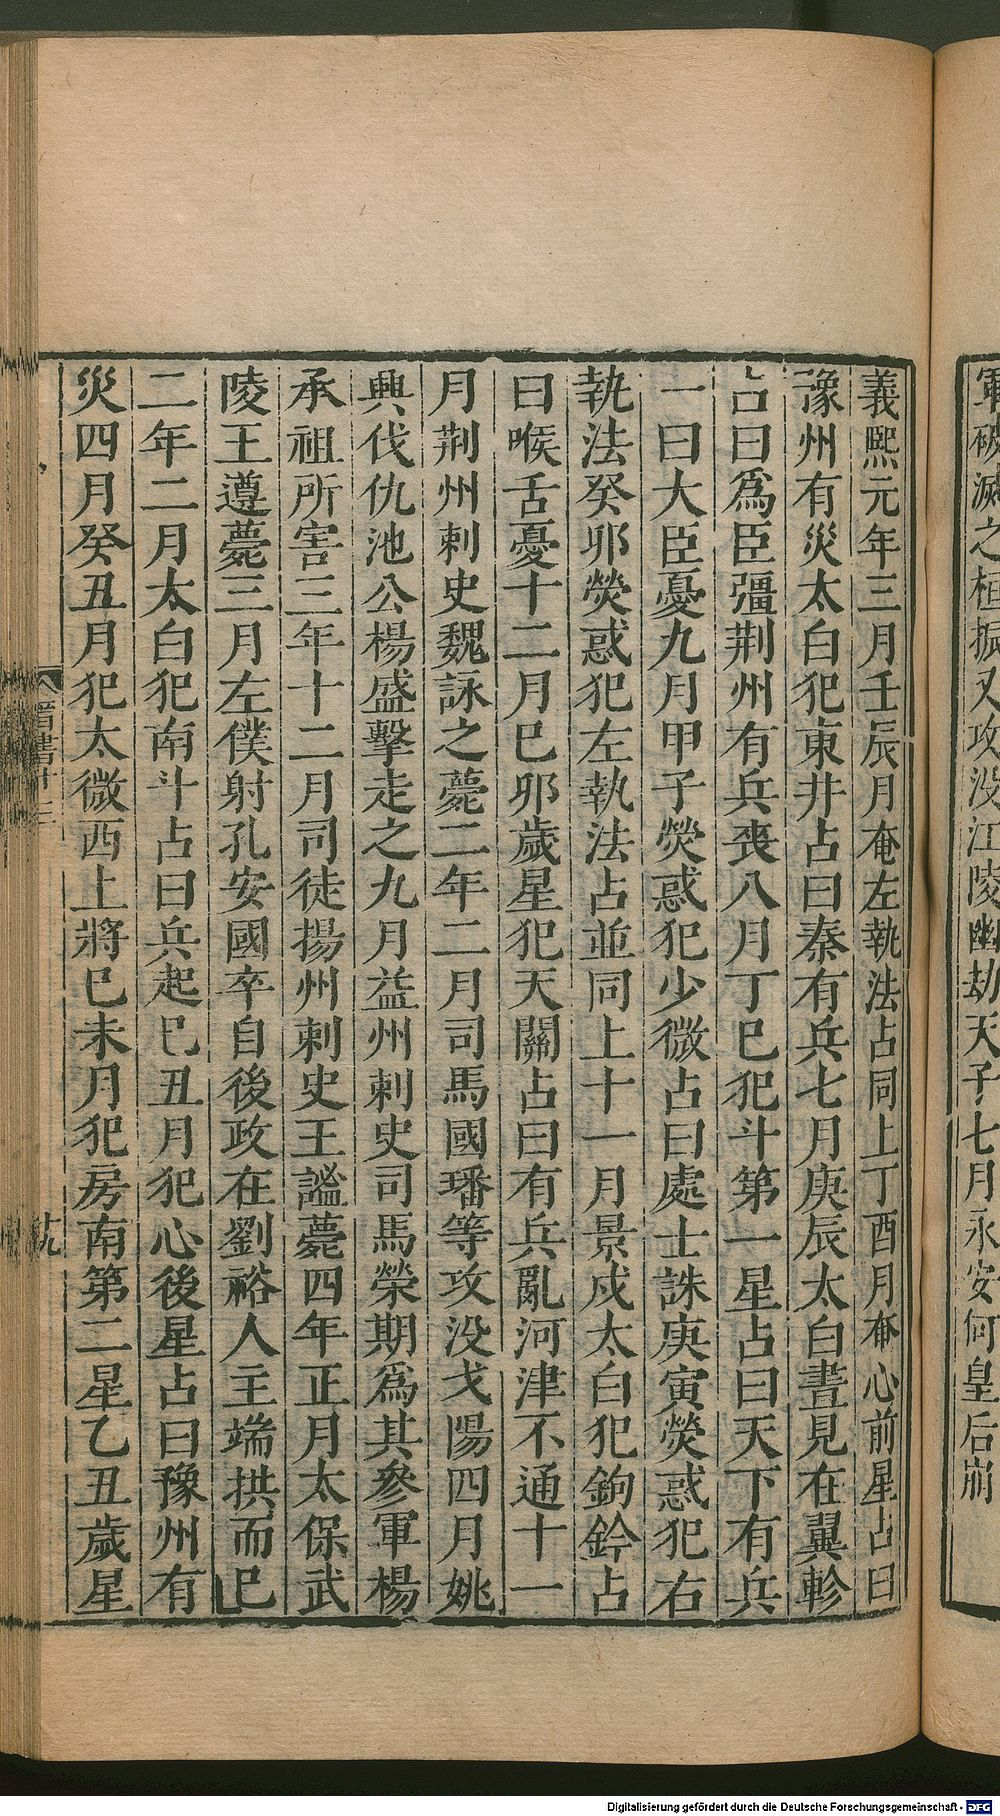 軍破滅之桓振又攻没江陵幽劫天子七月永安何皇后崩
義熙元年三月壬辰月奄左執法占同上丁酉月奄心前星占曰
豫州有災太白犯東井占曰秦有兵七月庚辰太白晝見在翼軫
占曰爲臣彊荆州有兵喪八月丁巳犯斗第一星占曰天下有兵
一曰大臣憂九月甲子熒惑犯少微占曰處士誅庚寅熒惑犯右
執法癸卯熒惑犯左執法占並同上十一月景戍太白犯鉤鈐占
曰喉舌憂十二月巳卯歲星犯天關占曰有兵亂河津不通十一
月荆州刺史魏詠之薨二年二月司馬國璠等攻没戈陽四月姚
興伐仇池公楊盛擊走之九月益州刺史司馬榮期爲其參軍楊
承祖所害三年十二月司徒揚州刺史王謐薨四年正月太保武
陵王遵薨三月左僕射孔安國卒自後政在劉裕人主端拱而已
二年二月太白犯南斗占曰兵起巳丑月犯心後星占曰豫州有
災四月癸丑月犯太微西上將巳未月犯房南第二星乙丑歲星
晉書廿三
廿九
Digitalisierung gefördert durch die Deutsche Forschungsgemeinschaft - DFG